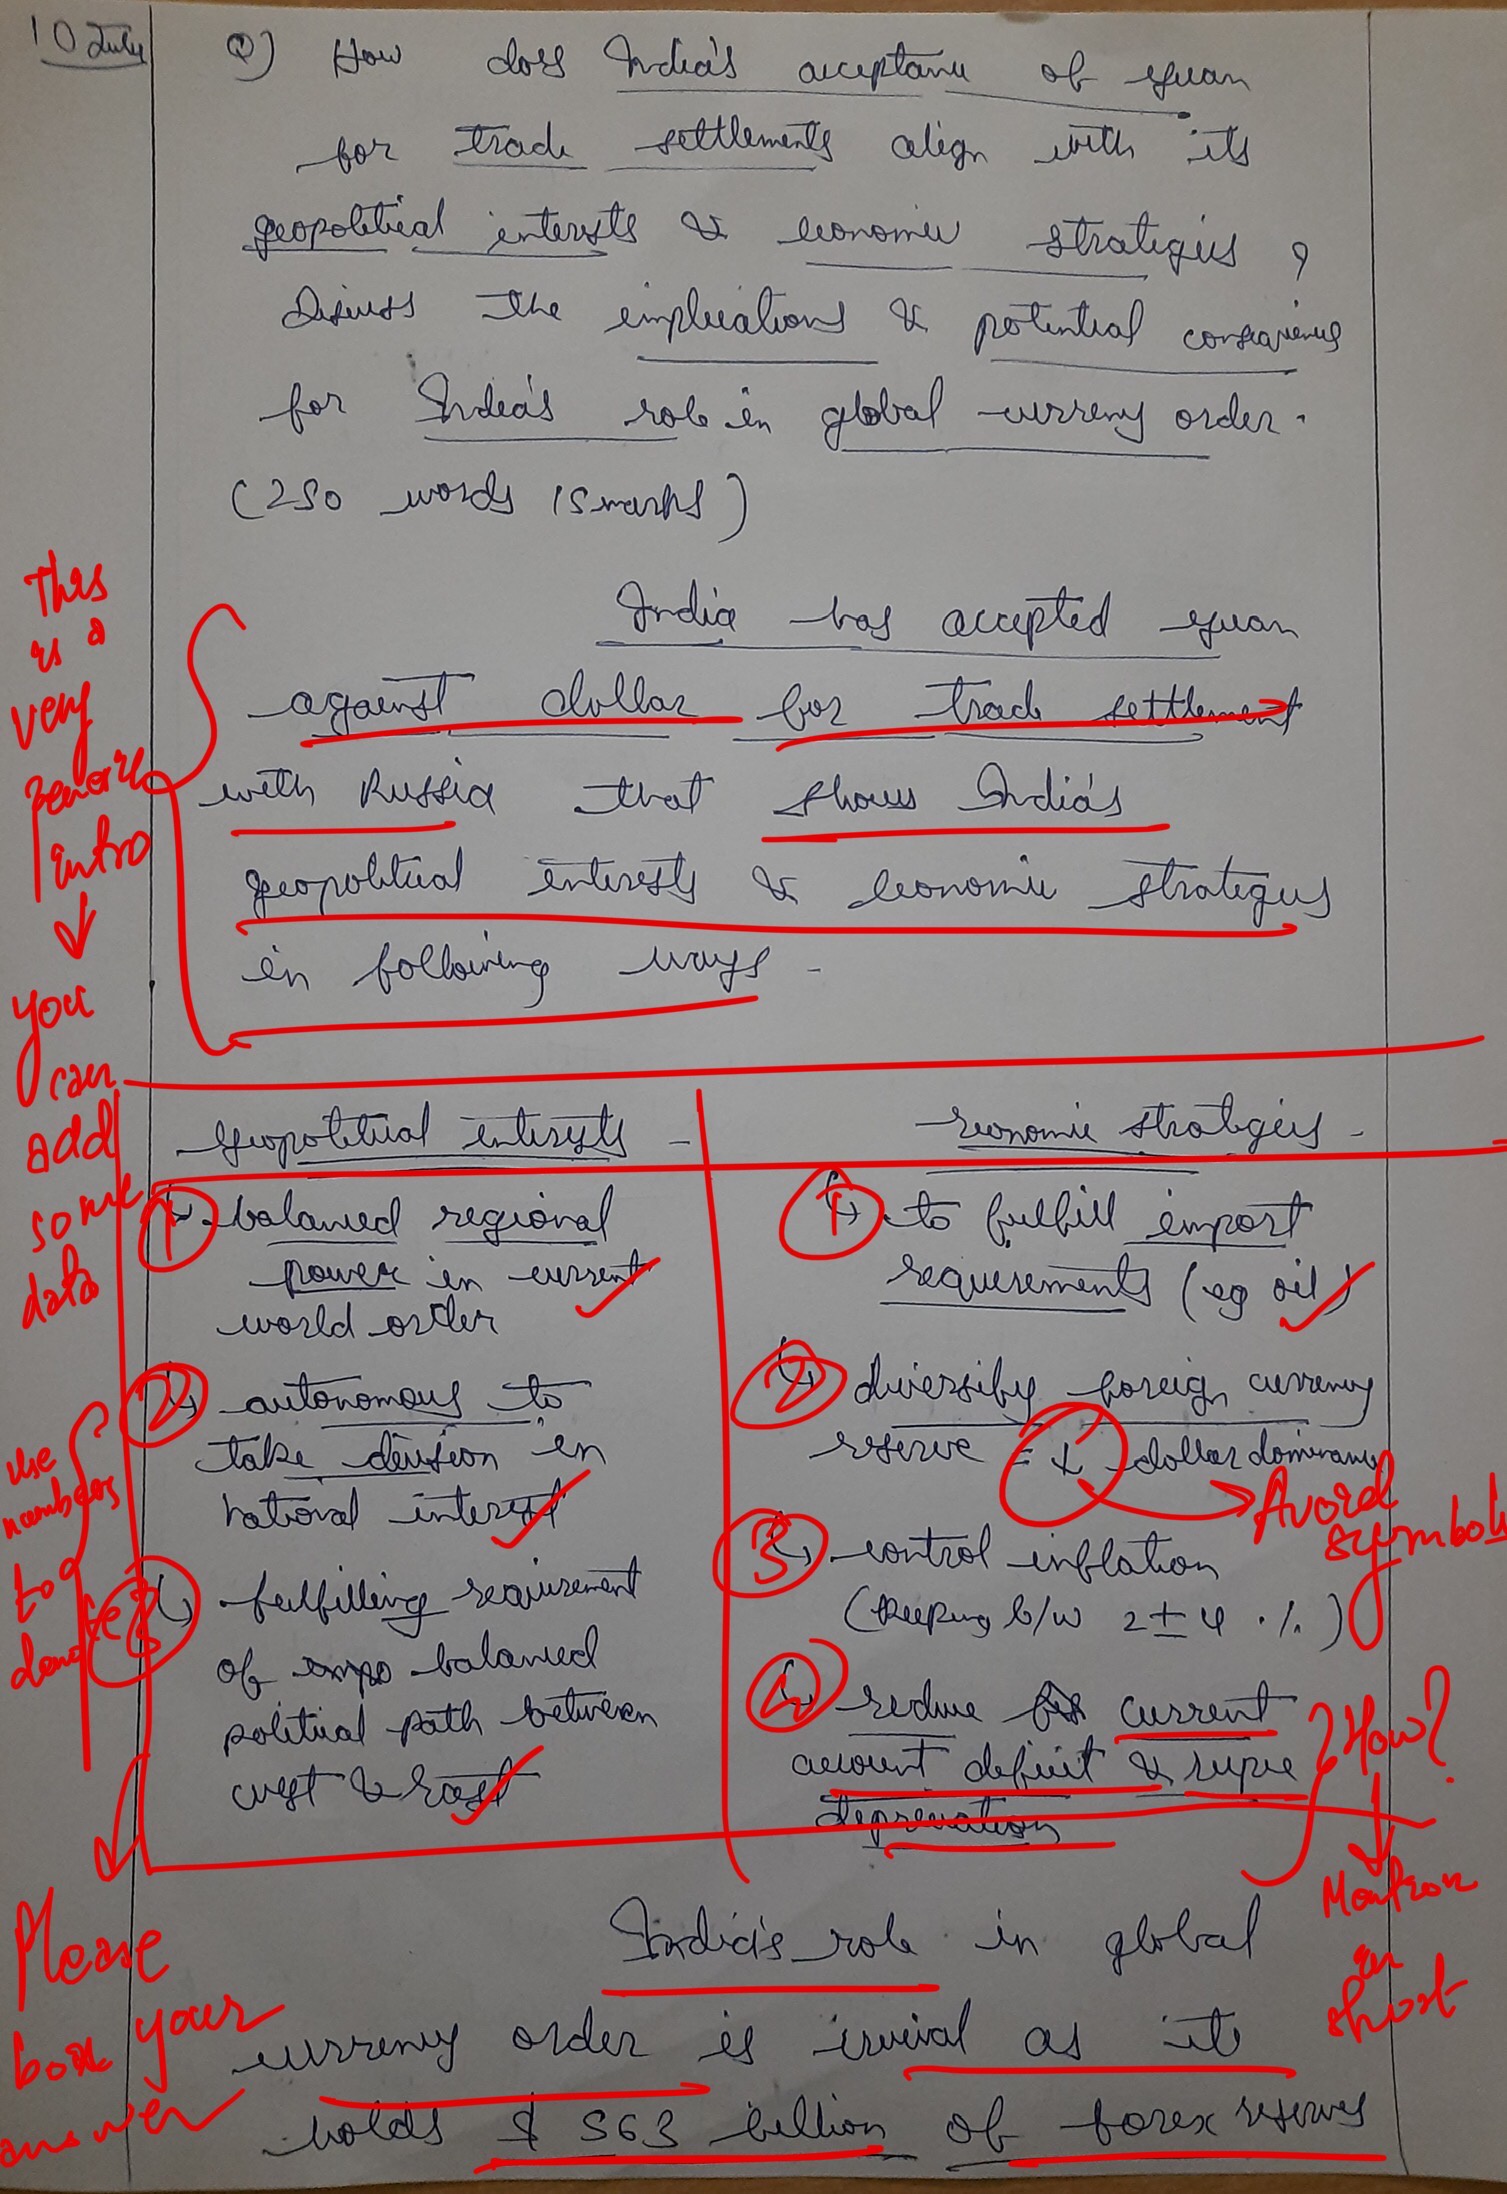 10 July
Q) How does India's acceptance of yuan
for trade settlements align with its
geopolitical interests & economic strategies ?
Discuss the implications & potential consequences
for India's role in global currency order.
(250 words 15 marks)
India has accepted yuan
against dollar for trade settlement
with Russia that shows India's
geopolitical interests & economic strategies
in following ways -
This
is a
very
generic
intro
you
can
add
some
data
Geopolitical interests -
1 balanced regional
power in current
world order
2 autonomous to
take decision in
national interest
3 fulfilling requirement
of balanced
political path between
west & East
use
numbers
to
denote
Please
box your
answer
Economic strategies -
1 to fulfill import
requirements (eg oil)
2 diversify foreign currency
reserve = ↓ dollar dominance
Avoid
symbols
3 control inflation
(keeping b/w 2 ± 4 %)
4 reduce current
account deficit & rupee
depreciation
How?
Mention
in
short
India's role in global
currency order is crucial as its
holds $ 563 billion of forex reserves